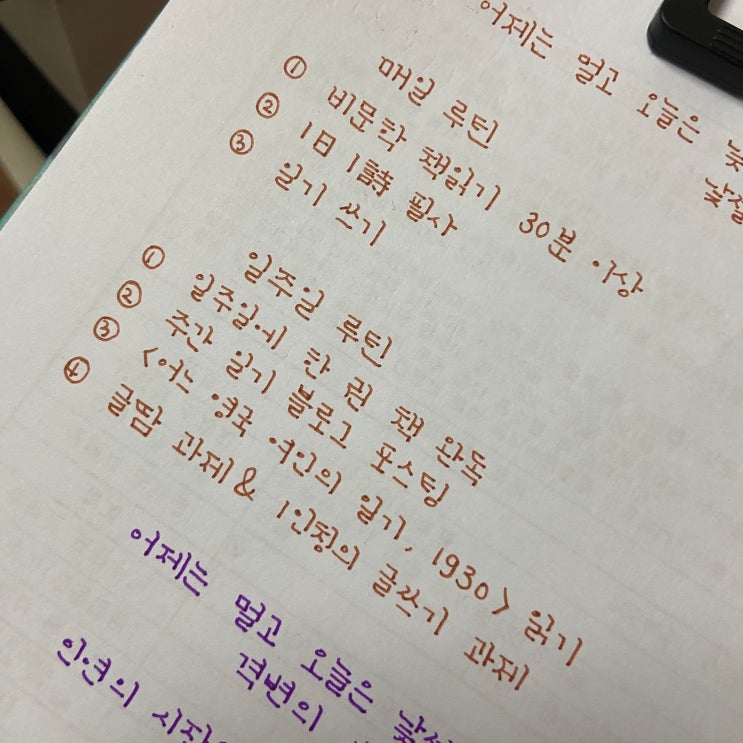 어제는 멀고 오늘은
매일 루틴
① 비문학 책읽기 30분 이상
② 1日 1詩 필사
③ 일기 쓰기
일주일 루틴
① 일주일에 한 권 책 완독
② 주간 일기 블로그 포스팅
③ <어느 영국 여인의 일기, 1930> 읽기
④ 글땀 과제 & 1인칭의 글쓰기 과제
어제는 멀고 오늘은
격변의
인연의